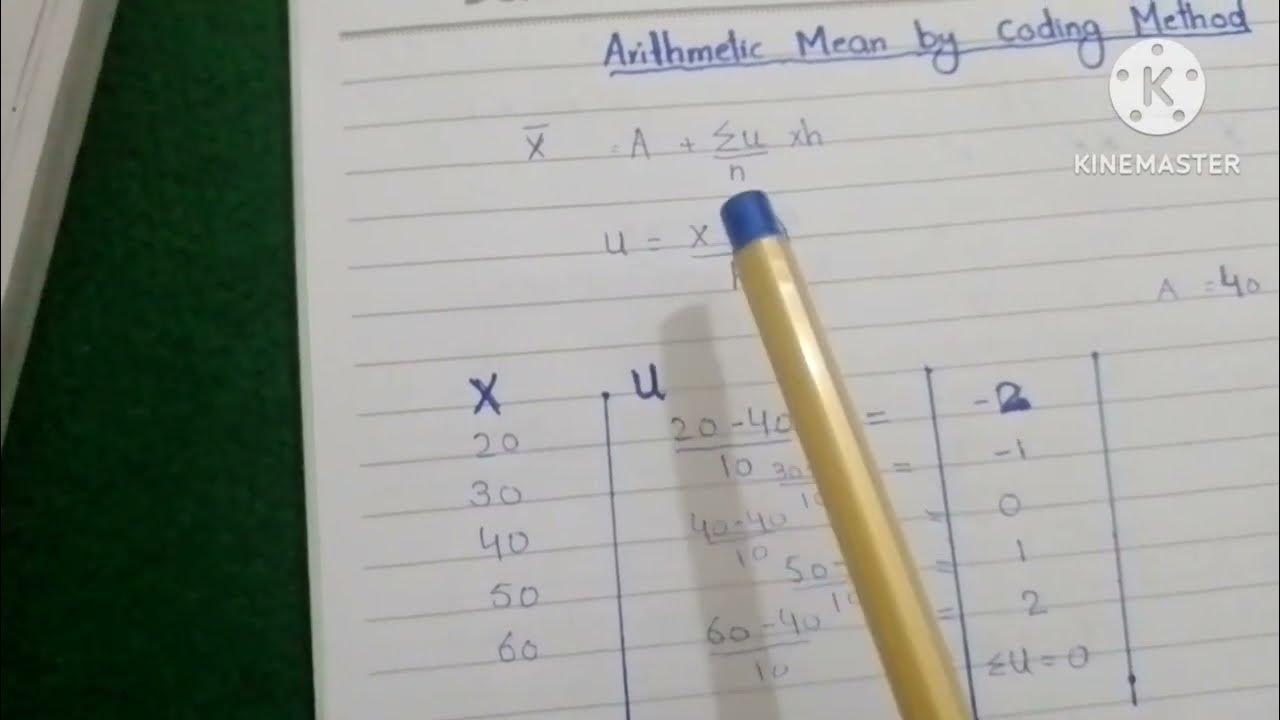 Arithmetic Mean by Coding Method
K
KINEMASTER
X̄ = A + ΣU/n xh
U = X
A = 40
X U -2
20 20-40/10 =
30 30/10 = -1
40 40-40/10 = 0
50 50-/10 = 1
60 60-40/10 = 2
ΣU = 0